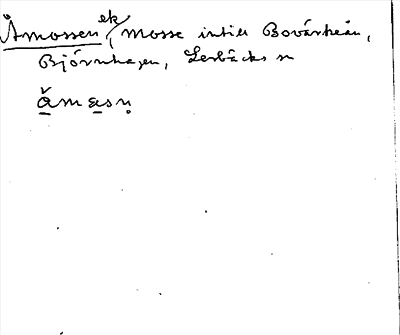 Åmossen ek, mosse intill Bovärkeån,
Björnhagen, Lerbäcks sn
åmasn